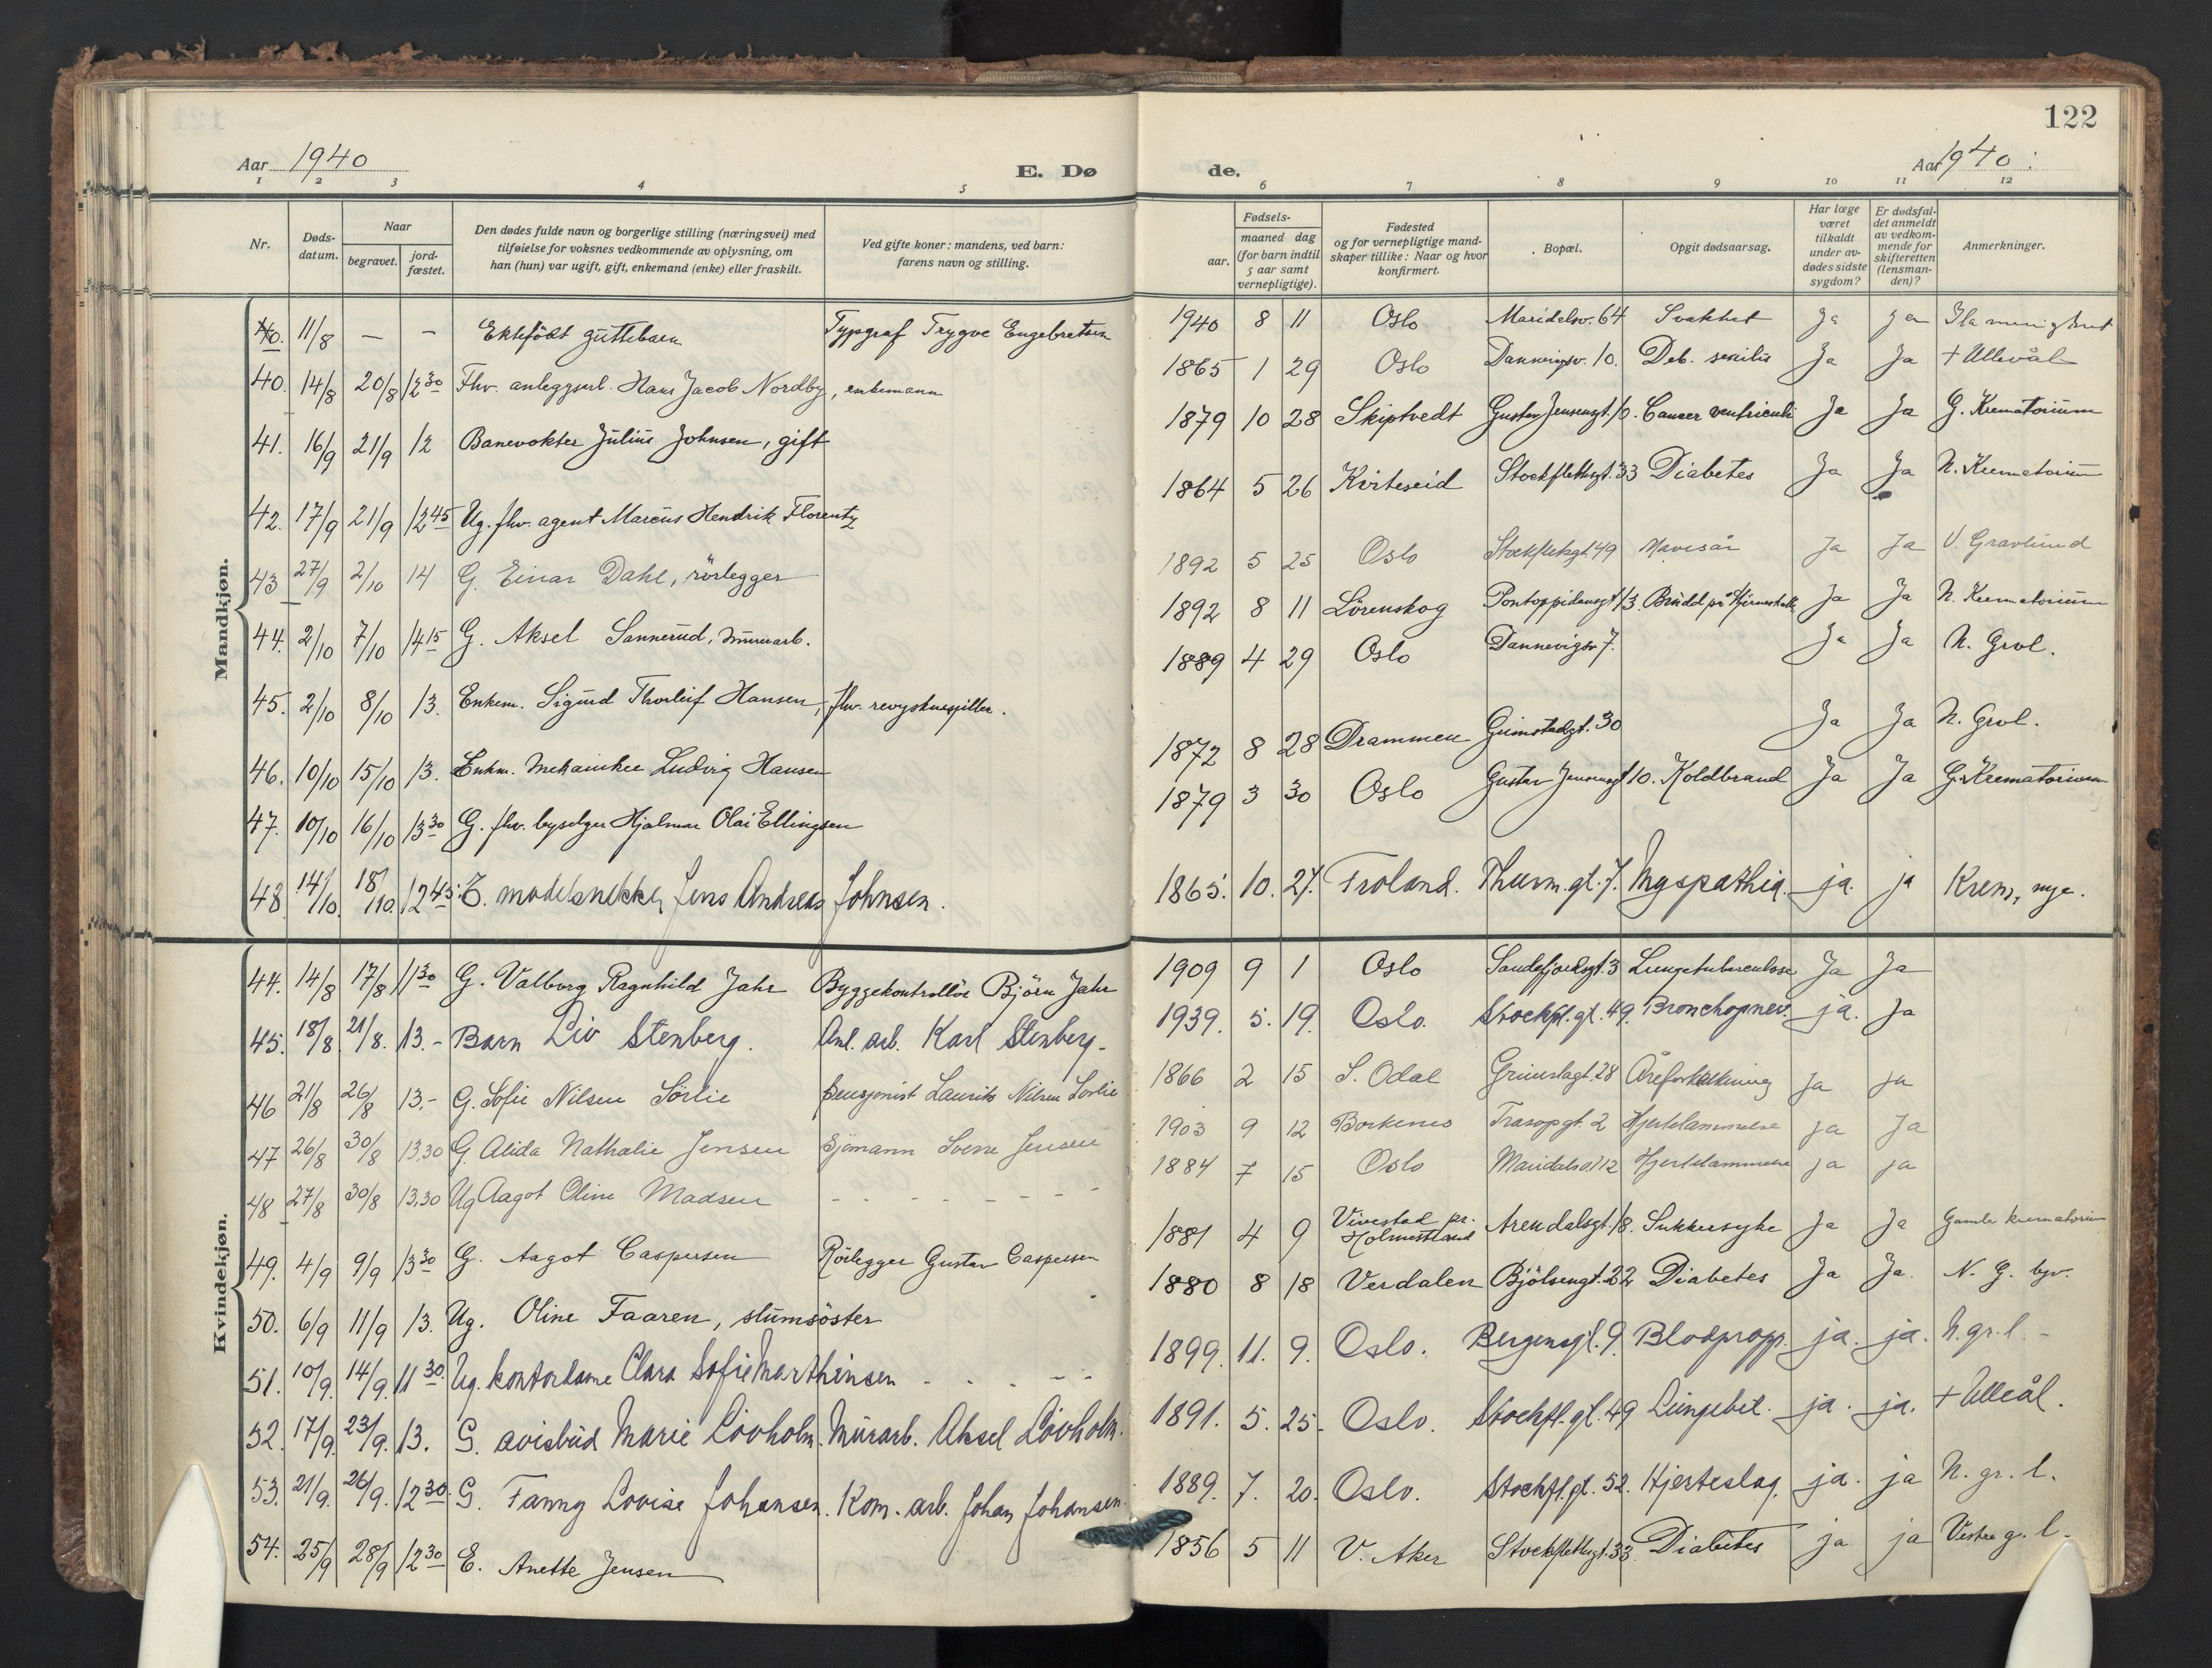 122
Aar 1940
E. Dø
de.
Aar 1940.
1 2 3 4 5 6 7 8 9 10 11 12
Nr.
Døds-
datum.
Naar
begravet.
jord-
fæstet.
Den dødes fulde navn og borgerlige stilling (næringsvei) med
tilføielse for voksnes vedkommende av oplysning, om
han (hun) var ugift, gift, enkemand (enke) eller fraskilt.
Ved gifte koner: mandens, ved barn:
farens navn og stilling.
Fødsels-
aar.
maaned dag
(for barn indtil
5 aar samt
vernepligtige).
Fødested
og for vernepligtige mand-
skaper tillike: Naar og hvor
konfirmert.
Bopæl.
Opgit dødsaarsag.
Har læge
været
tilkaldt
under av-
dødes sidste
sygdom?
Er dødsfal-
det anmeldt
av vedkom-
mende for
skifteretten
(lensman-
den)?
Anmerkninger.
Mandkjøn.
40. 11/8 — — Ektefödt guttebarn Typgraf Trygve Engebretsen 1940 8 11 Oslo Maridalsv. 64 Svakhet Ja Ja Ila menighet
40. 14/8 20/8 12 30 Fhv. anleggsarb. Hans Jacob Nordby, enkemann 1865 1 29 Oslo Dannevigsv. 10. Deb. senilis Ja Ja + Ullevål
41. 16/9 21/9 12 Banevokter Julius Johnsen, gift 1879 10 28 Skiptvedt Gustav Jensensgt. 10. Cancer ventriculi Ja Ja G. Krematorium
42. 17/9 21/9 12 45 Ug. fhv. agent Marcus Hendrik Florentz 1864 5 26 Kviteseid Stockflethsgt. 33 Diabetes Ja Ja N. Krematorium
43 27/9 2/10 14 G. Einar Dahl, rörlegger 1892 5 25 Oslo Stockflethsgt. 49 Mavesår Ja Ja V. Gravlund
44. 2/10 7/10 14 15 G. Aksel Sannerud, murarb. 1892 8 11 Lörenskog Pontoppidansgt. 13. Brudd på Hjerneskall Ja Ja N. Krematorium
45. 2/10 8/10 13. Enkem. Sigurd Thorleif Hansen, fhv. revyskuespiller. 1889 4 29 Oslo Dannevigsv 7. Ja Ja N. Grvl.
46. 10/10 15/10 13. Enkm. Mekaniker Ludvig Hansen 1872 8 28 Drammen Grimstadgt. 30 Ja Ja N. Grvl.
47. 10/10 16/10 13 30 G. fhv. byselger Hjalmar Olai Ellingsen 1879 3 30 Oslo Gustav Jensensgt 10. Koldbrand Ja Ja G. Krematorium
48. 14/10. 18/10. 12 45. E. modelsnekker Jens Andreas Johnsen. 1865. 10. 27. Froland. Thurm. gt. 7. Myspathia. ja. ja Krem, nye.
Kvindekjøn.
44. 14/8 17/8 11 30 G. Valborg Ragnhild Jahr Byggekontrollör Björn Jahr 1909 9 1 Oslo Sandefjordsgt. 3 Lungetuberculose Ja Ja
45. 18/8. 21/8. 13.- Barn Liv Stenberg. Anl. arb. Karl Stenberg. 1939. 5. 19. Oslo. Stockfl. gt. 49. Bronchopnev. ja. Ja
46 21/8 26/8 13,- G. Sofie Nilsen Sörlie Pensjonist Laurits Nilsen Sörlie 1866 2 15 S. Odal Grimstagt. 28 Åreforkalkning Ja ja
47 26/8 30/8 13,30 G. Alida Nathalie Jensen Sjömann Sverre Jensen 1903 9 12 Borkenes Trasopgt. 2 Hjertelammelse ja Ja
48 27/8 30/8 13,30 Ug Aagot Oline Madsen - - - - - - - - 1884 7 15 Oslo Maridalsv. 112 Hjertelammelse ja ja
49. 4/9 9/9 13 30 G. Aagot Caspersen Rörlegger Gustav Caspersen 1881 4 9 Vivestad pr. Holmestrand Arendalsgt. 18. Sukkersyke Ja Ja Gamle krematorium
50. 6/9 11/9 13. Ug. Oline Faaren, slumsöster 1880 8 18 Verdalen Bjölsengt. 22 Diabetes Ja Ja. N. G. byv.
51. 10/9. 14/9. 11 30. Ug. kontordame Clara Sofie Marthinsen - - - - - 1899. 11. 9. Oslo. Bergensgt. 9. Blodpropp. ja. ja. N. gr. l. -
52. 17/9. 23/9. 13. G. avisbud Marie Lövholm. Murarb. Aksel Lövholm. 1891. 5. 25. Oslo. Stockfl. gt. 49 Lungebet. ja. ja. + Ulleål.
53. 21/9. 26/9. 12 30. G. Fanny Lovise Johansen. Kom. arb. Johan Johansen. 1889. 7. 20. Oslo. Stockfl. gt. 52. Hjerteslag. ja. ja N. gr. l.
54. 25/9 28/9 12 30 E. Anette Jensen 1856 5 11 V. Aker Stockflethsgt. 33. Diabetes ja ja Vestre g. l.